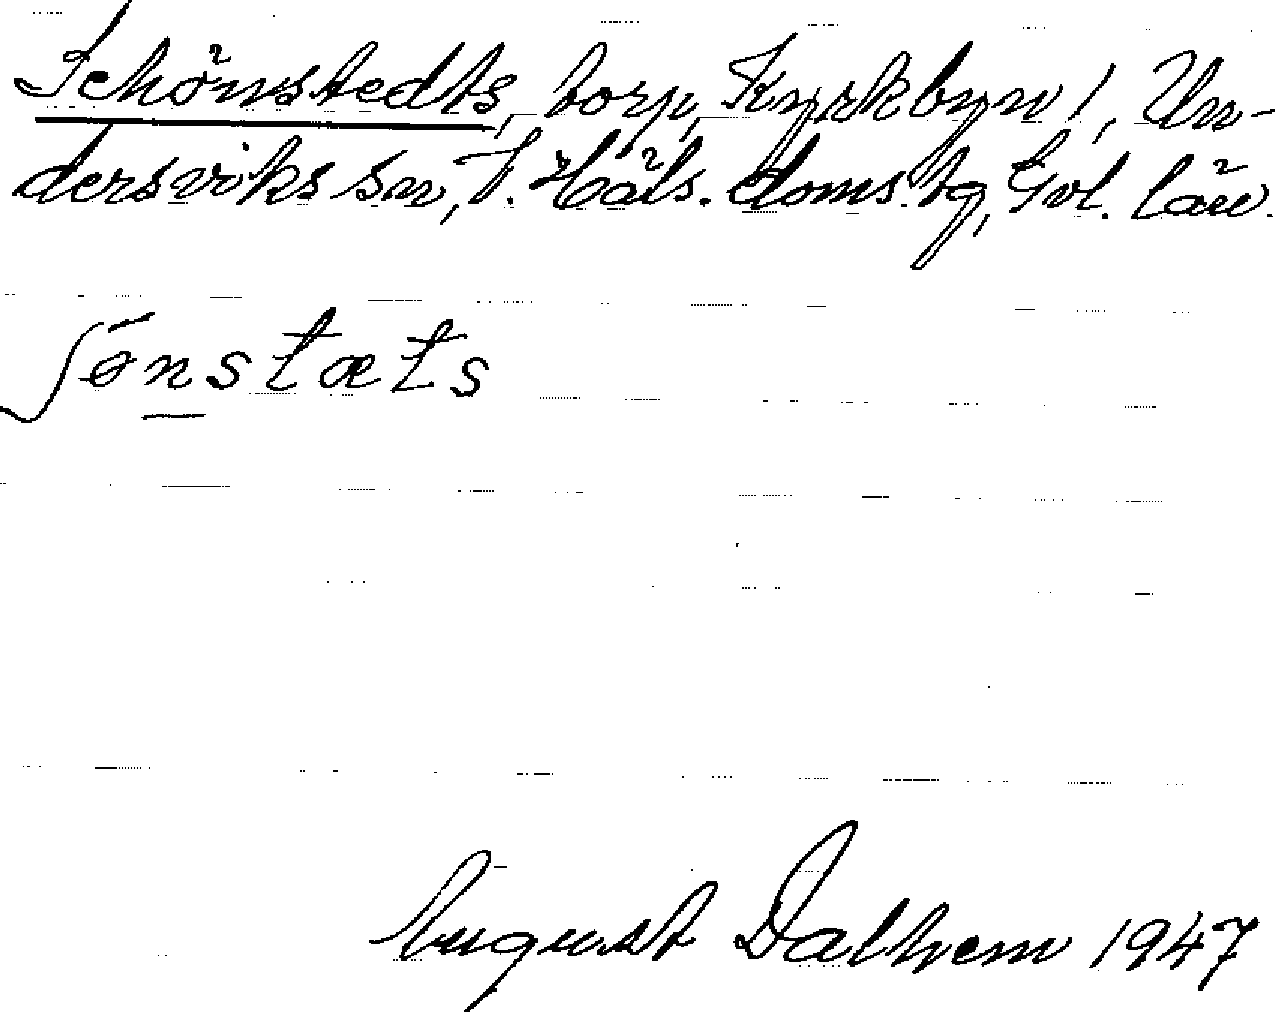 Schönstedts, torp, Kyrkbyn 1, Un-
dersviks sn, V. Häls. doms.tg, Gvl. län.
ʃönstæts
August Dalhem 1947